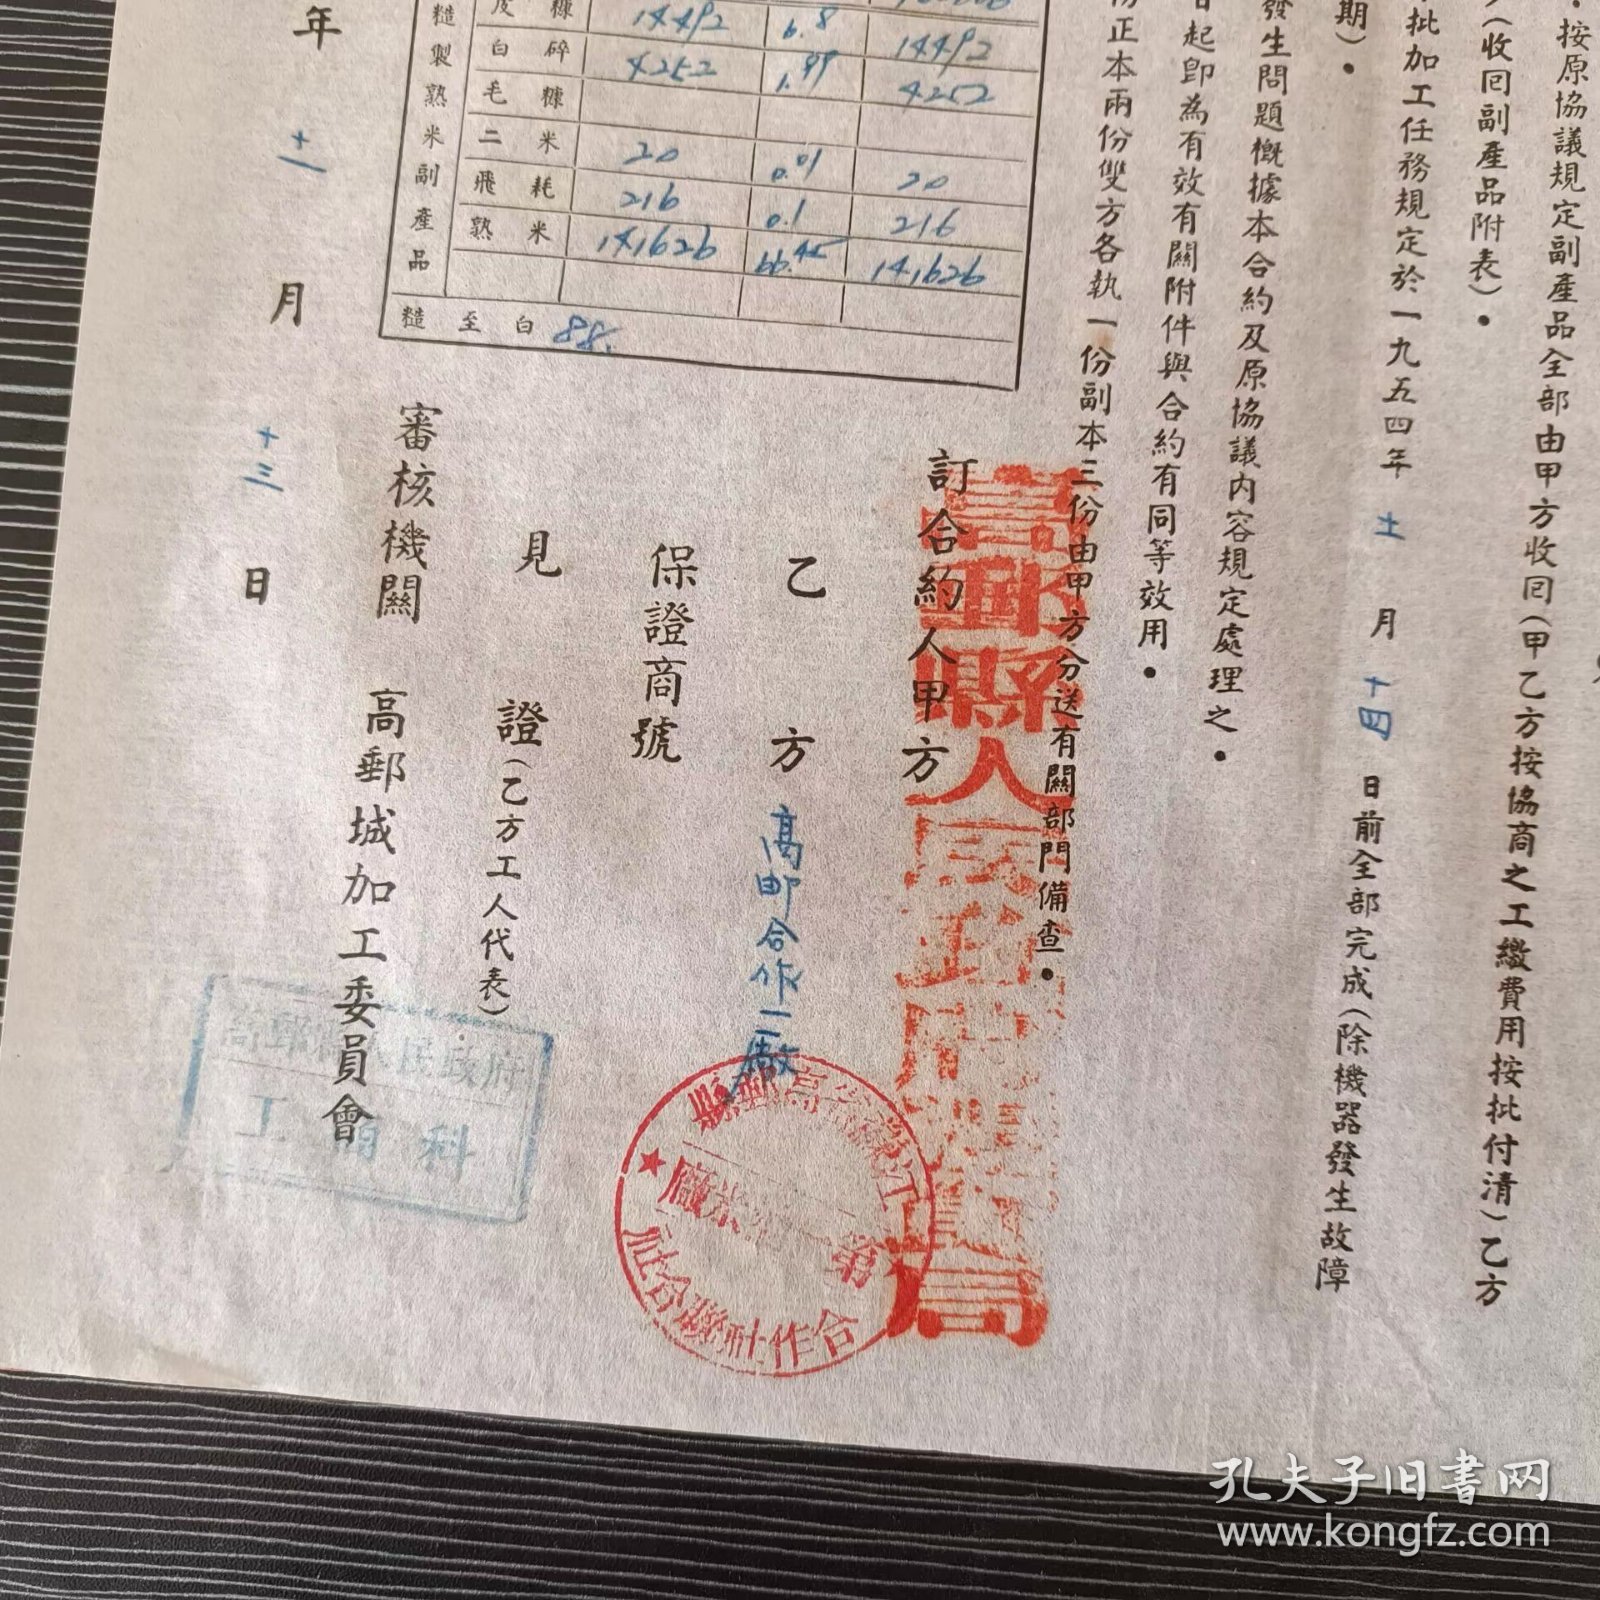 按原協議規定副產品全部由甲方收囘(甲乙方按協商之工繳費用按批付清)乙方
(收囘副產品附表)。
批加工任務規定於一九五四年 十一 月 十四 日前全部完成(除機器發生故障
期)。
發生問題概據本合約及原協議內容規定處理之。
日起卽為有效有關附件與合約有同等效用。
正本兩份雙方各執一份副本三份由甲方分送有關部門備查。
糙製熟米副產品
皮糠 14492 6.8 14492
白碎 4252 1.99 4252
毛糠
二米 20 0.01 20
飛耗 216 0.1 216
熟米 141626 66.45 141626
糙至白 88.
訂合約人甲方
高郵縣人民政府糧食局
乙方 高邮合作一廠
江蘇省高郵縣
合作社聯合社
第一米廠
保證商號
見證(乙方工人代表)
審核機關 高郵城加工委員會
高郵縣人民政府
工商科
年 十一 月 十三 日
孔夫子旧书网
www.kongfz.com